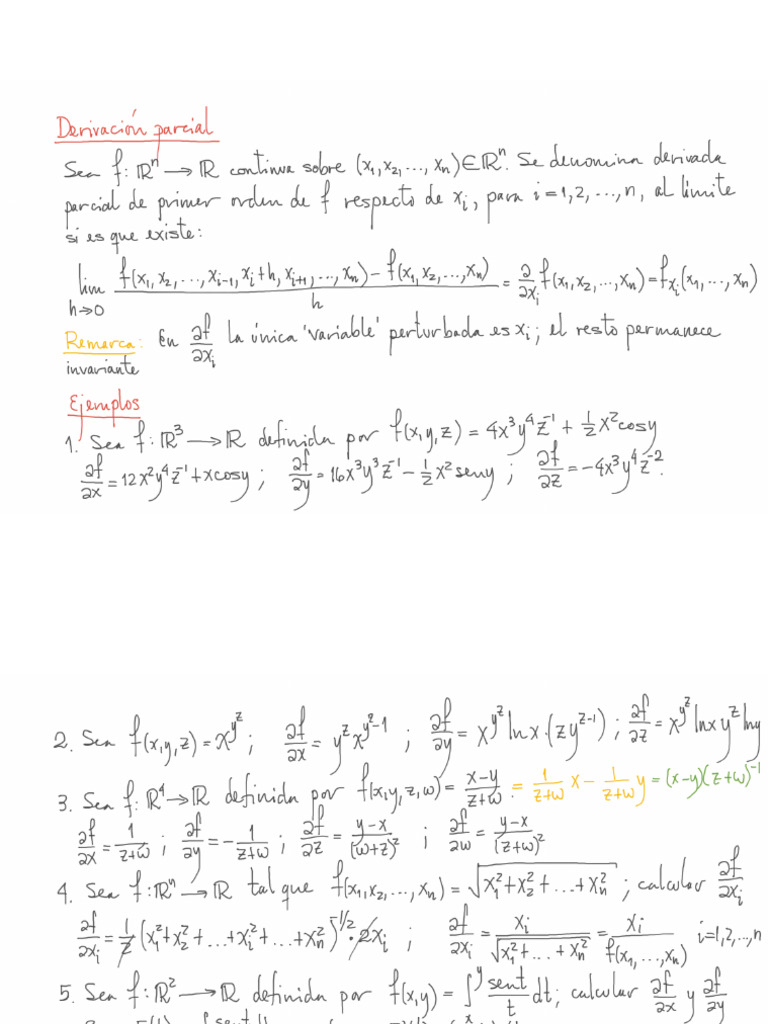 Derivación parcial
Sea f: ℝⁿ → ℝ continua sobre (x₁, x₂, ..., xₙ) ∈ ℝⁿ. Se denomina derivada
parcial de primer orden de f respecto de xᵢ, para i = 1, 2, ..., n, al límite
si es que existe:
lim_{h→0} [f(x₁, x₂, ..., xᵢ₋₁, xᵢ+h, xᵢ₊₁, ..., xₙ) − f(x₁, x₂, ..., xₙ)] / h = ∂/∂xᵢ f(x₁, x₂, ..., xₙ) = f_{xᵢ}(x₁, ..., xₙ)
Remarca: En ∂f/∂xᵢ la única 'variable' perturbada es xᵢ; el resto permanece
invariante
Ejemplos
1. Sea f: ℝ³ → ℝ definida por f(x,y,z) = 4x³y⁴z⁻¹ + ½x²cosy
∂f/∂x = 12x²y⁴z⁻¹ + xcosy ; ∂f/∂y = 16x³y³z⁻¹ − ½x²seny ; ∂f/∂z = −4x³y⁴z⁻².
2. Sea f(x,y,z) = x^{y^z} ; ∂f/∂x = y^z x^{y^z−1} ; ∂f/∂y = x^{y^z} lnx·(zy^{z−1}) ; ∂f/∂z = x^{y^z} lnx y^z lny
3. Sea f: ℝ⁴ → ℝ definida por f(x,y,z,w) = (x−y)/(z+w). = 1/(z+w) x − 1/(z+w) y = (x−y)(z+w)⁻¹
∂f/∂x = 1/(z+w) ; ∂f/∂y = −1/(z+w) ; ∂f/∂z = (y−x)/(w+z)² ; ∂f/∂w = (y−x)/(z+w)²
4. Sea f: ℝⁿ → ℝ tal que f(x₁, x₂, ..., xₙ) = √(x₁²+x₂²+...+xₙ²) ; calcular ∂f/∂xᵢ
∂f/∂xᵢ = 1/2 (x₁²+x₂²+...+xᵢ²+...+xₙ²)^{−1/2}·2xᵢ ; ∂f/∂xᵢ = xᵢ/√(x₁²+...+xₙ²) = xᵢ/f(x₁, ..., xₙ) i=1,2,...,n
5. Sea f: ℝ² → ℝ definida por f(x,y) = ∫ₓ^y (sent/t) dt ; calcular ∂f/∂x y ∂f/∂y